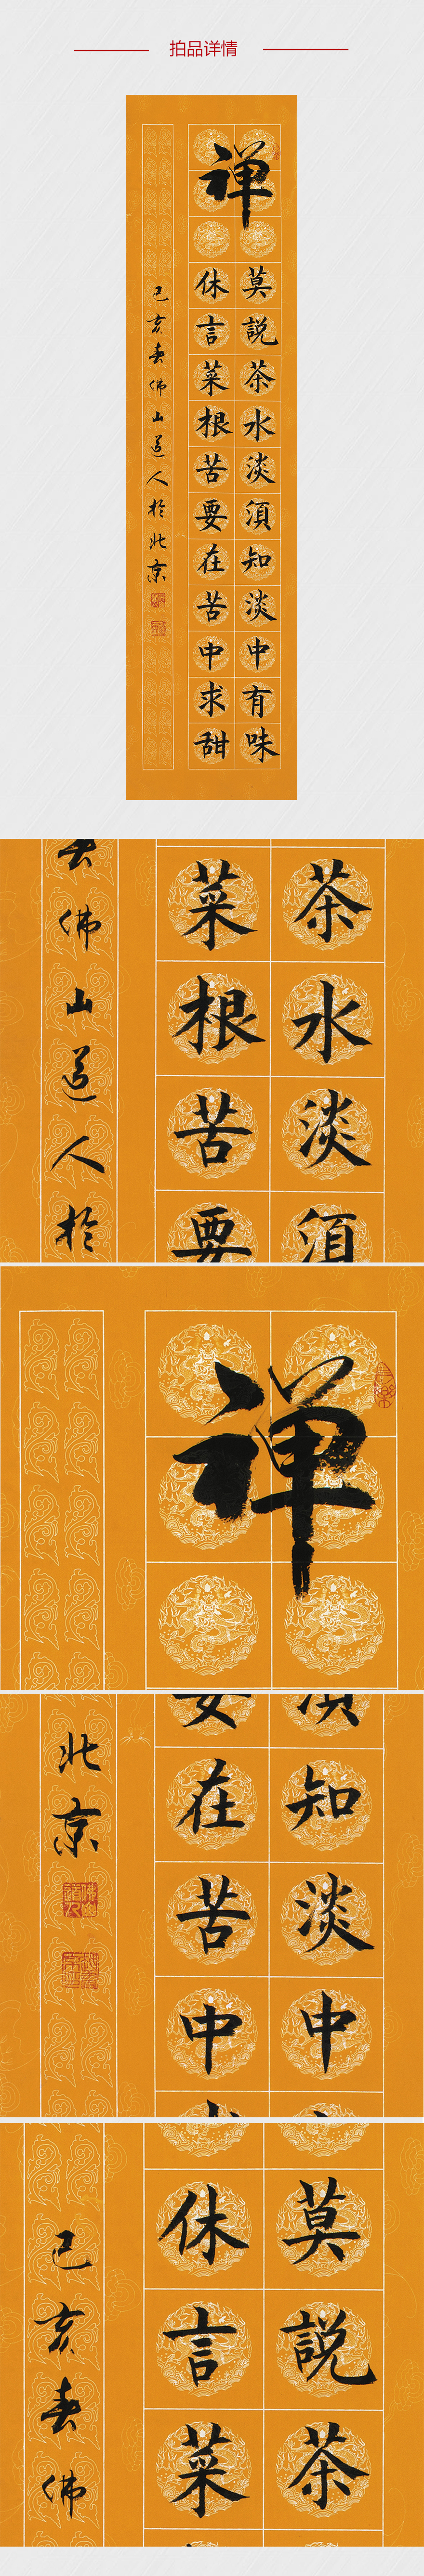 拍品详情
禅
莫說茶水淡須知淡中有味
休言菜根苦要在苦中求甜
己亥春佛山道人於北京
茶水淡須
菜根苦要
春佛山道人於
禅
須知淡中
要在苦中
北京
佛山道人
莫說茶
休言菜
己亥春佛